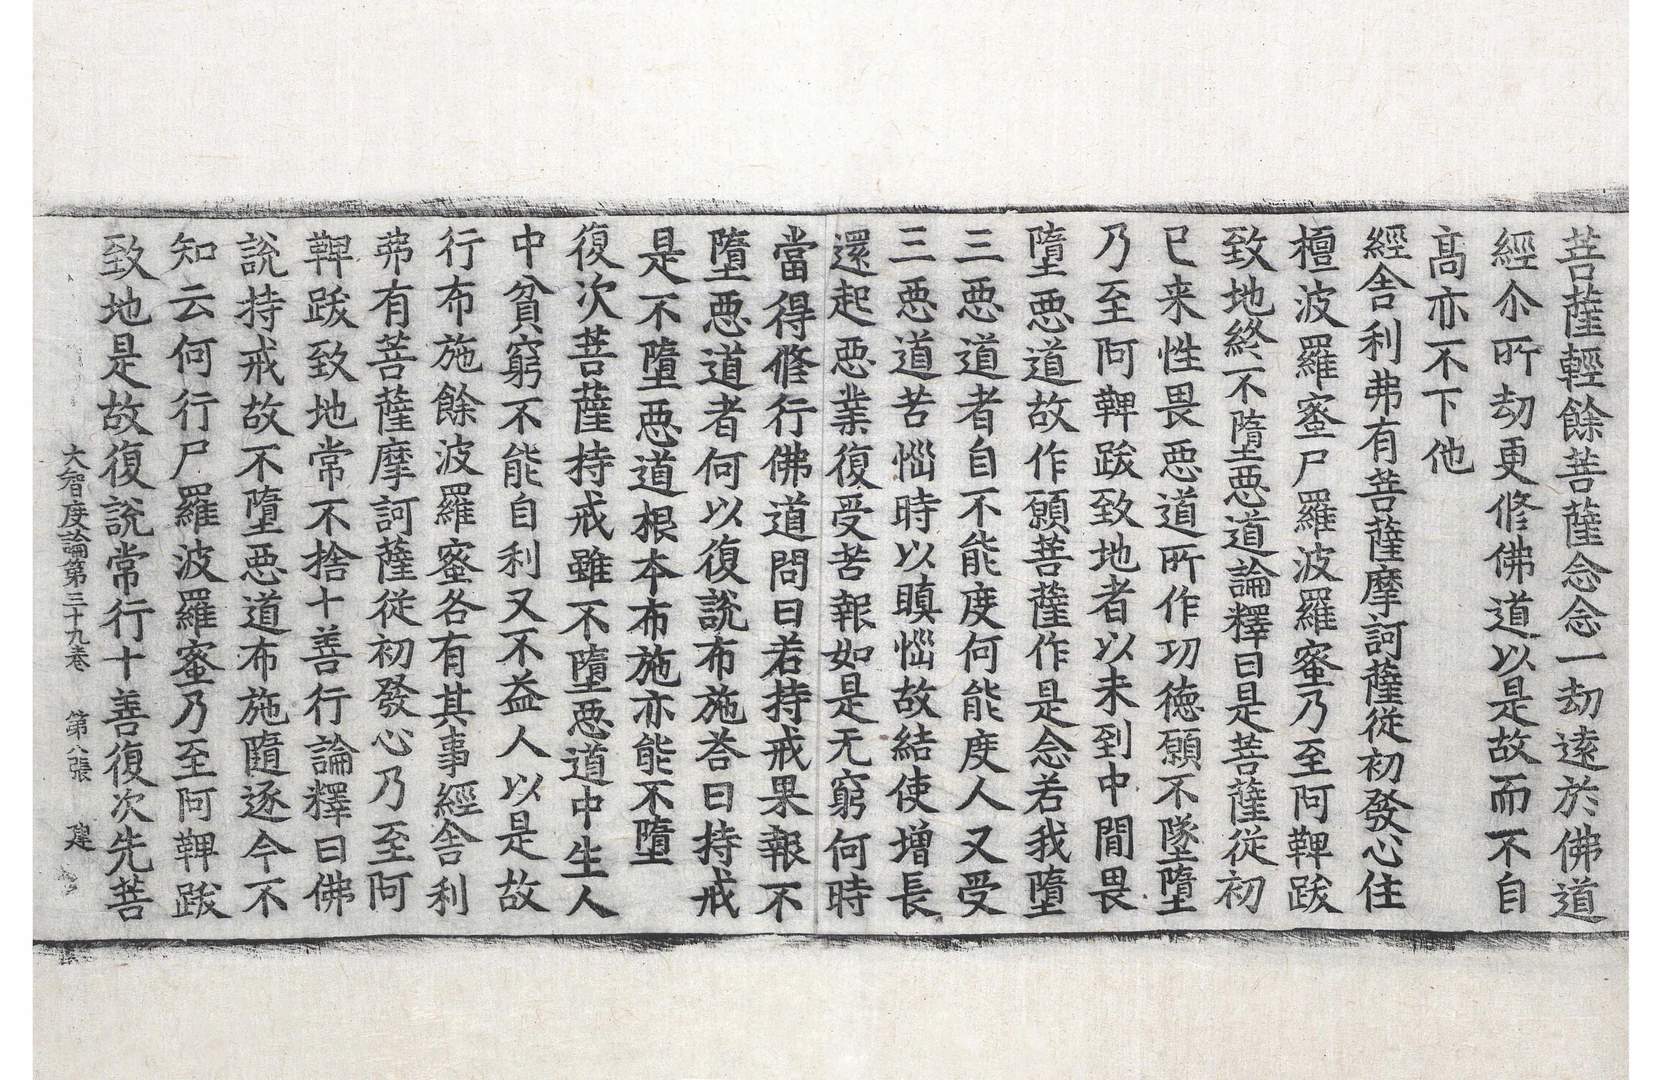 菩薩輕餘菩薩念念一劫遠於佛道
經尒所劫更修佛道以是故而不自
髙亦不下他
經舍利弗有菩薩摩訶薩從初發心住
檀波羅蜜尸羅波羅蜜乃至阿鞞跋
致地終不墮惡道論釋曰是菩薩從初
已来性畏惡道所作功德願不墜墮
乃至阿鞞跋致地者以未到中間畏
墮惡道故作願菩薩作是念若我墮
三惡道者自不能度何能度人又受
三惡道苦惱時以瞋惱故結使增長
還起惡業復受苦報如是无窮何時
當得修行佛道問曰若持戒果報不
墮惡道者何以復說布施荅曰持戒
是不墮惡道根本布施亦能不墮
復次菩薩持戒雖不墮惡道中生人
中貧窮不能自利又不益人以是故
行布施餘波羅蜜各有其事經舍利
弗有菩薩摩訶薩從初發心乃至阿
鞞跋致地常不捨十善行論釋曰佛
說持戒故不墮惡道布施隨逐今不
知云何行尸羅波羅蜜乃至阿鞞跋
致地是故復說常行十善復次先菩
大智度論第三十九卷 第八張 建